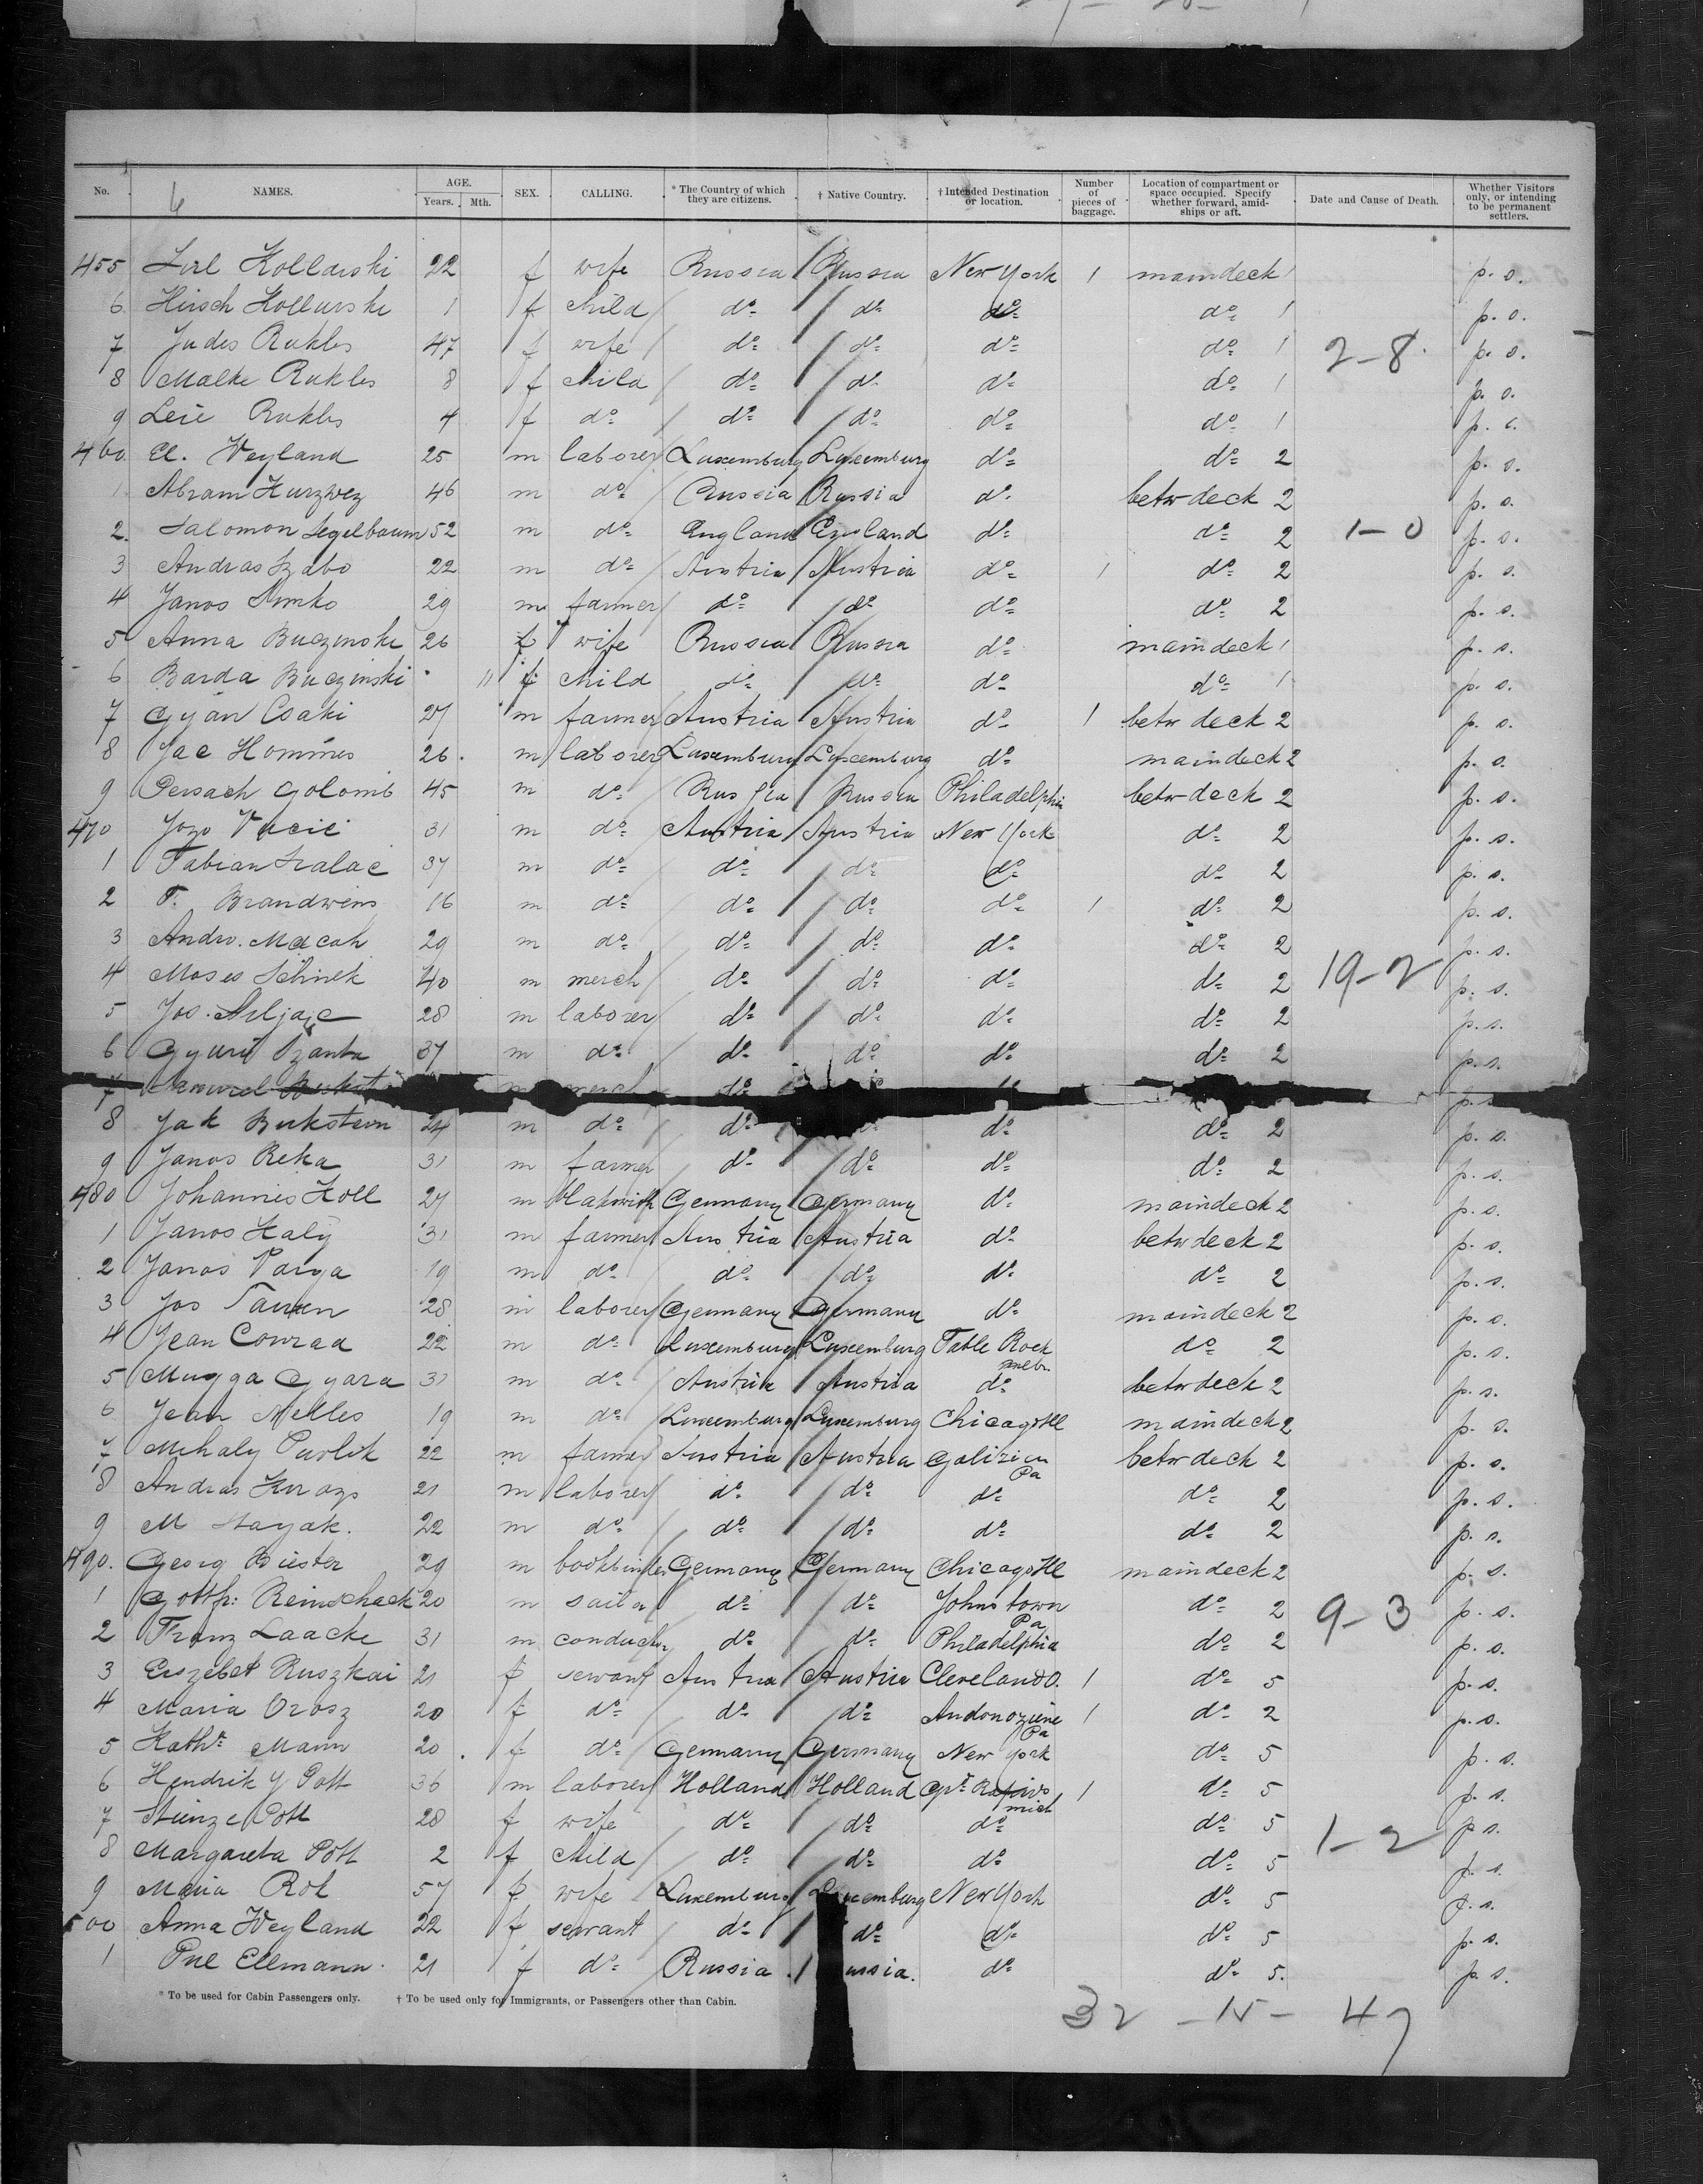 No. NAMES. AGE. Years. Mth. SEX. CALLING. * The Country of which they are citizens. † Native Country. † Intended Destination or location. Number of pieces of baggage. Location of compartment or space occupied. Specify whether forward, amidships or aft. Date and Cause of Death. Whether Visitors only, or intending to be permanent settlers.
6
455 Kollarski 22 f wife Russia Russia New York 1 maindeck 1 p. s.
6 Hirsch Kollarski 1 f child do do do do 1 p. s.
7 Judes Rukles 47 f wife do do do do 1 2-8 p. s.
8 Malke Rukles 8 f child do do do do 1 p. s.
9 Leie Rukles 4 f do do do do do 1 p. s.
460 El. Weyland 25 m laborer Luxemburg Luxemburg do do 2 p. s.
1 Abram Kurzweg 46 m do Russia Russia do betw deck 2 p. s.
2. Salomon Segelbaum 52 m do England England do do 2 1-0 p. s.
3 Andras Szabo 22 m do Austria Austria do 1 do 2 p. s.
4 Janos Simko 29 m farmer do do do do 2 p. s.
5 Anna Buczinski 26 f wife Russia Russia do maindeck 1 p. s.
6 Barda Buczinski " 11 f child do do do do 1 p. s.
7 Gyan Csaki 27 m farmer Austria Austria do 1 betw deck 2 p. s.
8 Jac Hommes 26. m laborer Luxemburg Luxemburg do maindeck 2 p. s.
9 Persach Golomb 45 m do Russia Russia Philadelphia betw deck 2 p. s.
470 Jozo Vucic 31 m do Austria Austria New York do 2 p. s.
1 Fabian 37 m do do do do do 2 p. s.
2 F. Brandwein 16 m do do do do 1 do 2 p. s.
3 Andro. Macah 29 m do do do do do 2 p. s.
4 Moses Schnek 40 m merch do do do do 2 19-2 p. s.
5 Jos. 28 m laborer do do do do 2 p. s.
6 Gyuri 37 m do do do do do 2 p. s.
7 m merch do p. s.
8 Jak Bukstein 24 m do do do do 2 p. s.
9 Janos Reka 31 m farmer do do do do 2 p. s.
480 Johannes Koll 27 m blaksmith Germany Germany do maindeck 2 p. s.
1 Janos Haly 31 m farmer Austria Austria do betw deck 2 p. s.
2 Janos Varga 19 m do do do do do 2 p. s.
3 Jos 28 m laborer Germany Germany do maindeck 2 p. s.
4 Jean Conrad 22 m do Luxemburg Luxemburg Table Rock do 2 p. s.
nebr.
5 Mugga Gyara 31 m do Austria Austria do betw deck 2 p. s.
6 Jean Melles 19 m do Luxemburg Luxemburg Chicago Ill maindeck 2 p. s.
7 Mihaly Pavlik 22 m farmer Austria Austria Galizien betw deck 2 p. s.
Pa
8 Andras 21 m laborer do do do do 2 p. s.
9 M Hayak. 22 m do do do do do 2 p. s.
490. Georg Biester 29 m bookbinder Germany Germany Chicago Ill maindeck 2 p. s.
1 Gottfr: Reinschack 20 m sailor do do Johnstown do 2 9-3 p. s.
Pa
2 Franz Laacke 31 m conductor do do Philadelphia do 2 p. s.
3 Erszebet Ruszkai 21 f servant Austria Austria Cleveland O. 1 do 5 p. s.
4 Maria Orosz 20 f do do do 1 do 2 p. s.
Pa
5 Kathr Mann 20. f do Germany Germany New York do 5 p. s.
6 Hendrik Y Pott 36 m laborer Holland Holland Gr Rapids 1 do 5 p. s.
mich
7 Stienze Pott 28 f wife do do do do 5 p. s.
8 Margareta Pott 2 f child do do do do 5 1-2 p. s.
9 Maria Rol 57 f wife Luxemburg Luxemburg New York do 5 p. s.
500 Anna Weyland 22 f servant do do do do 5 p. s.
1 Ellmann. 21 f do Russia. Russia. do do 5. p. s.
* To be used for Cabin Passengers only. † To be used only for Immigrants, or Passengers other than Cabin.
32 - 15 - 47